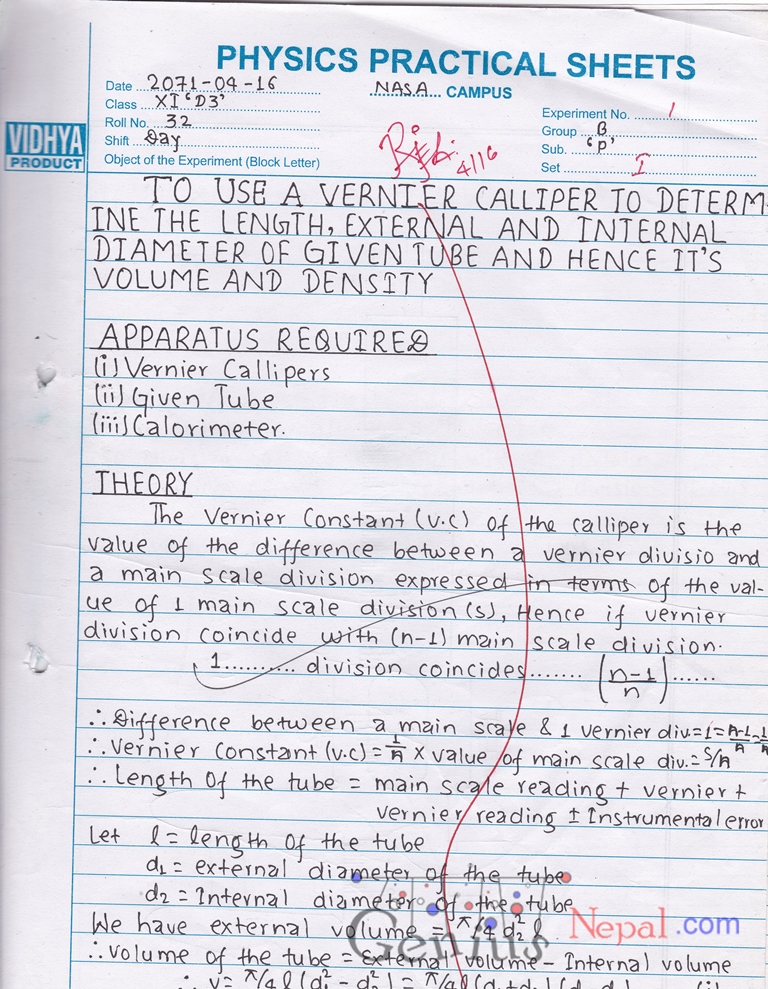 PHYSICS PRACTICAL SHEETS
Date 2071-04-16
NASA CAMPUS
Class XI 'D3'
Experiment No. 1
Roll No. 32
Group B
VIDHYA
PRODUCT
Shift Day
Sub. 'P'
4/16
Object of the Experiment (Block Letter)
Set I
TO USE A VERNIER CALLIPER TO DETERM-
INE THE LENGTH, EXTERNAL AND INTERNAL
DIAMETER OF GIVEN TUBE AND HENCE IT'S
VOLUME AND DENSITY
APPARATUS REQUIRED
(i) Vernier Callipers
(ii) Given Tube
(iii) Calorimeter.
THEORY
The Vernier Constant (V.C) of the calliper is the
value of the difference between a vernier divisio and
a main scale division expressed in terms of the val-
ue of 1 main scale division (s), Hence if vernier
division coincide with (n-1) main scale division.
1.......... division coincides........ (n-1/n) ......
∴ Difference between a main scale & 1 vernier div.=1=
∴ Vernier Constant (v.c) = 1/n × value of main scale div.= S/n
∴ Length Of the tube = main scale reading + vernier +
vernier reading ± Instrumental error
Let l = length Of the tube
d₁ = external diameter of the tube
d₂ = Internal diameter of the tube
We have external volume = π/4 d₂² l
∴ Volume of the tube = External volume - Internal volume
∴ V = π/4 l (d₁² - d₂²) = π/4 l (d₁ + d₂) (
Genius Nepal.com